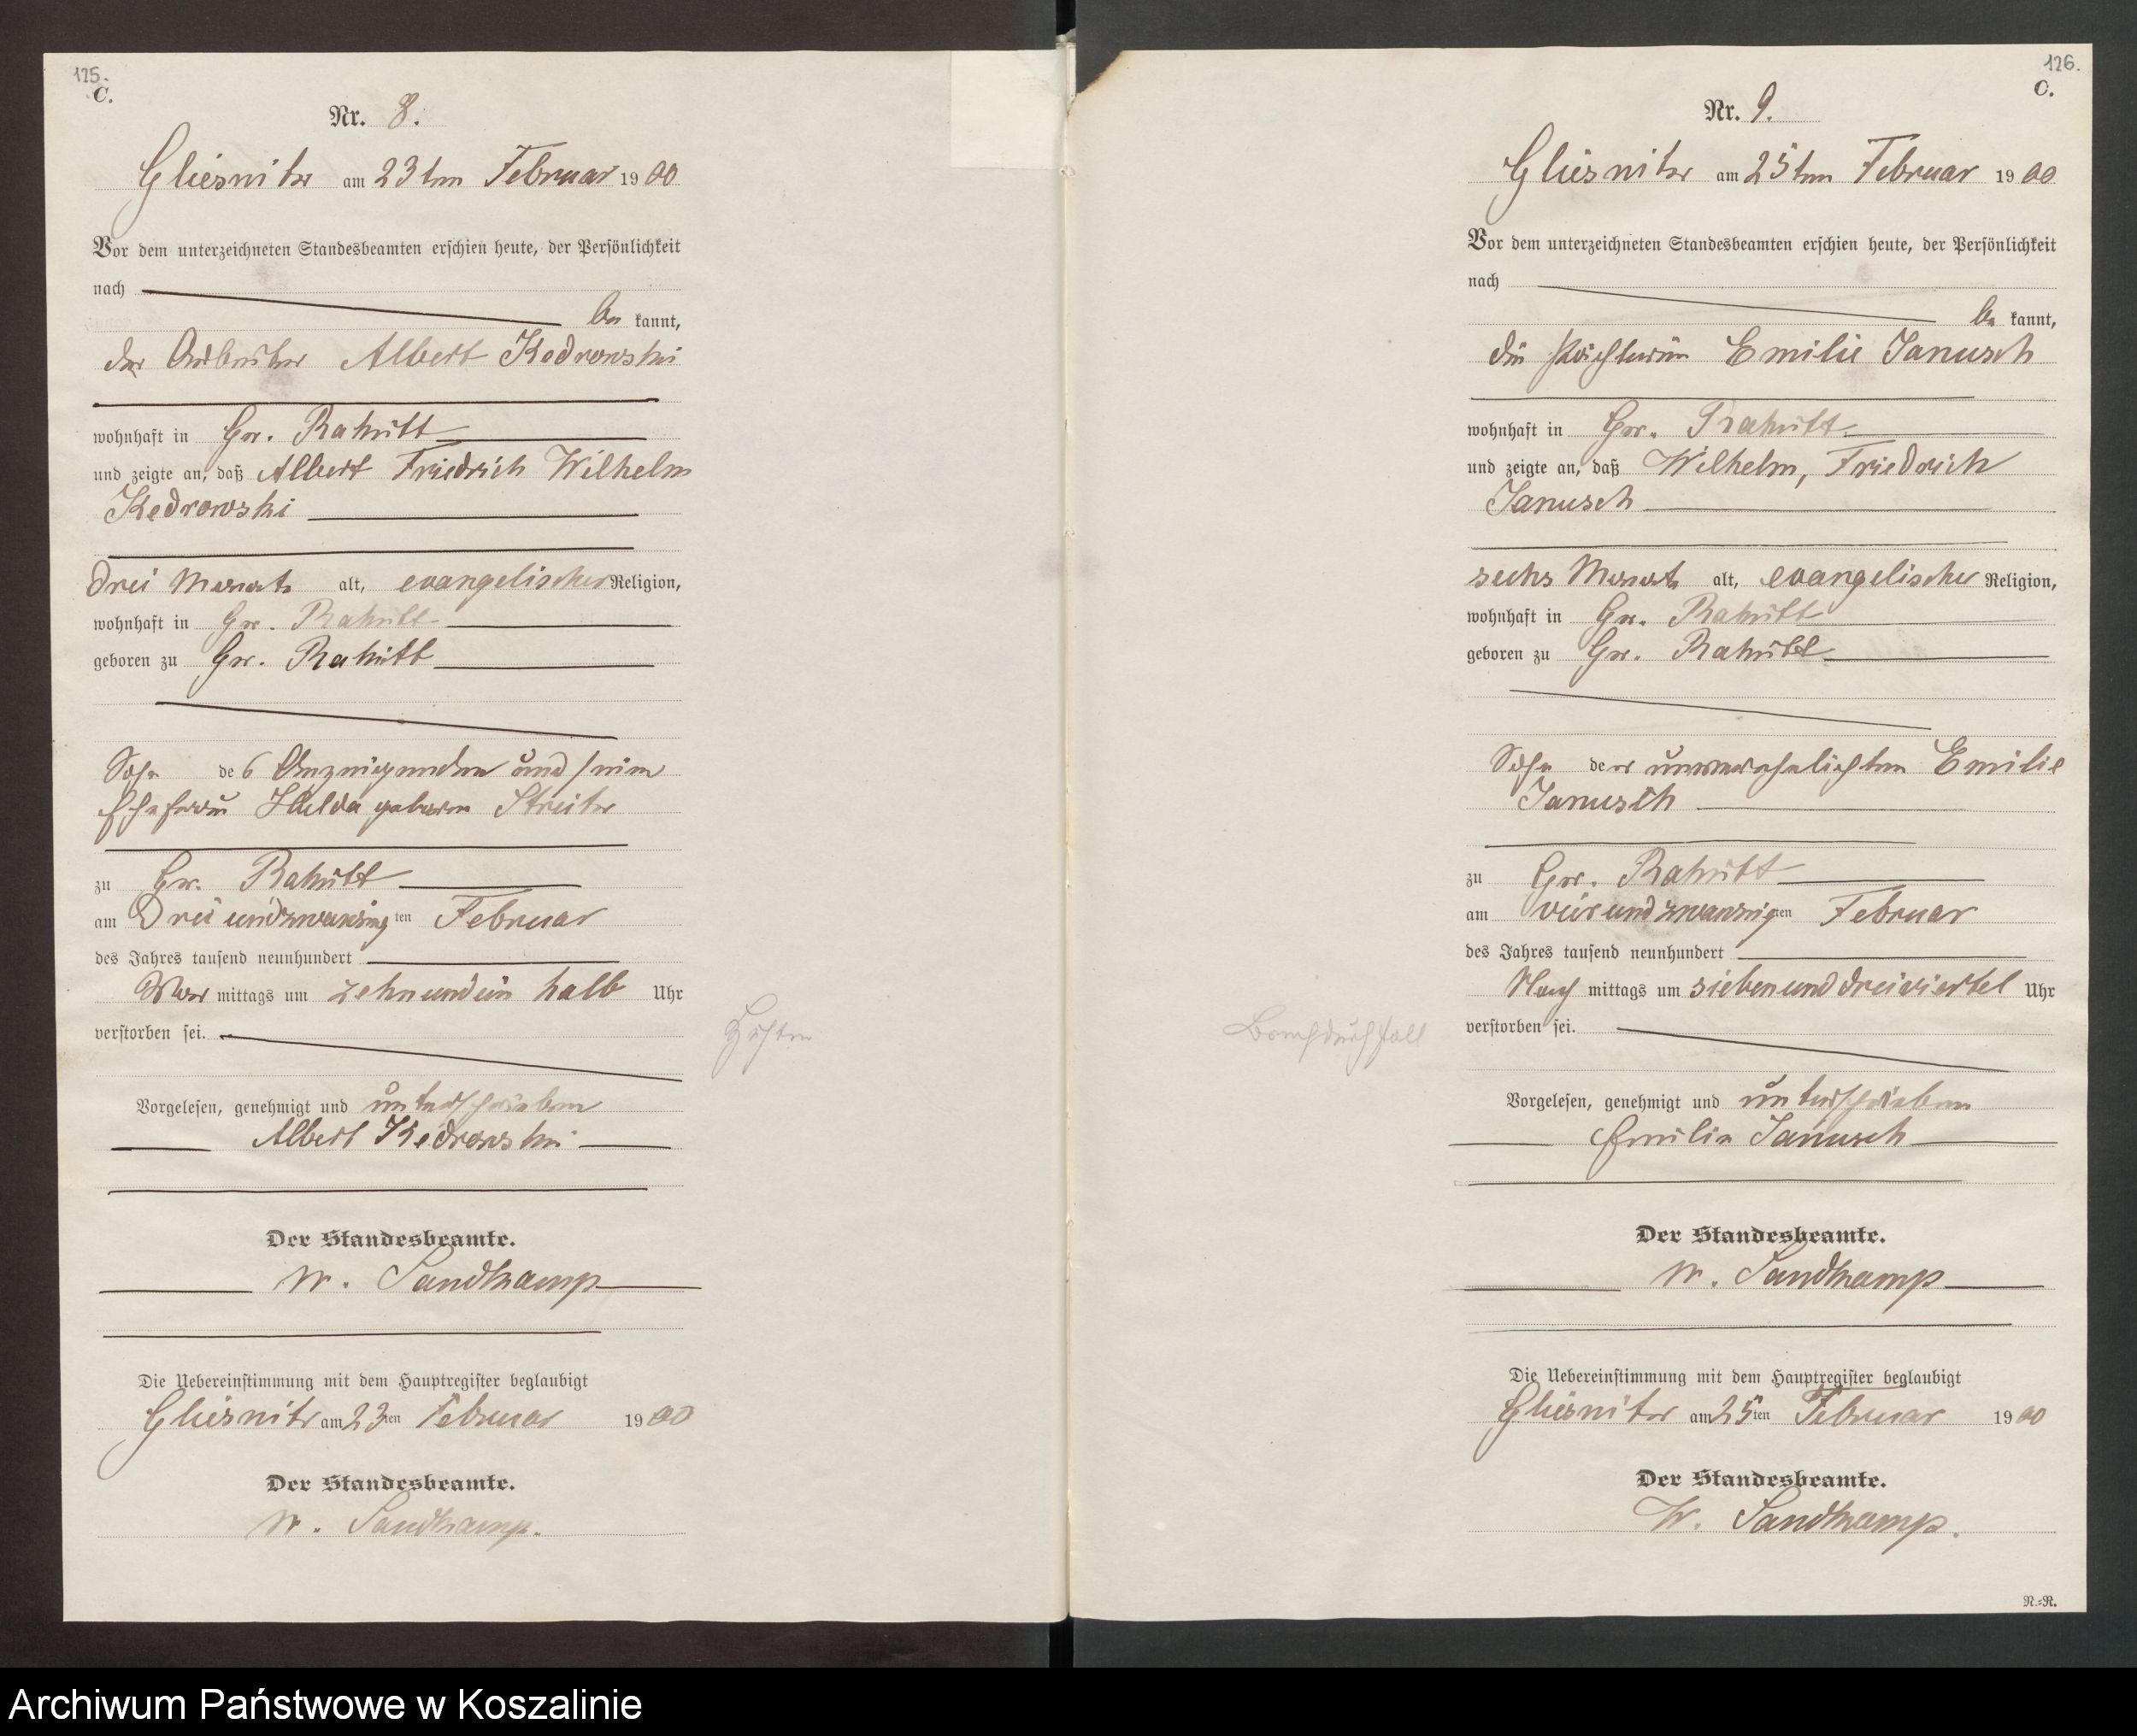 125.
C.
Nr. 8.
Gliesnitz am 23ten Februar 1900
Vor dem unterzeichneten Standesbeamten erschien heute, der Persönlichkeit
nach
be kannt,
der Arbeiter Albert Kedrowski
wohnhaft in Gr. Rakitt
und zeigte an, daß Albert Friedrich Wilhelm
Kedrowski
drei Monate alt, evangelischer Religion,
wohnhaft in Gr. Rakitt
geboren zu Gr. Rakitt
Sohn des Anzeigenden und seiner
Ehefrau Hulda geboren
zu Gr. Rakitt
am Drei und zwanzigten Februar
des Jahres tausend neunhundert
Vor mittags um zehn und ein halb Uhr
verstorben sei.
Husten
Vorgelesen, genehmigt und unterschrieben
Albert Kedrowski
Der Standesbeamte.
W. Sandkamp
Die Uebereinstimmung mit dem Hauptregister beglaubigt
Gliesnitz am 23ten Februar 1900
Der Standesbeamte.
W. Sandkamp.
126.
C.
Nr. 9.
Gliesnitz am 25ten Februar 1900
Vor dem unterzeichneten Standesbeamten erschien heute, der Persönlichkeit
nach
be kannt,
die Emilie Janusch
wohnhaft in Gr. Rakitt
und zeigte an, daß Wilhelm, Friedrich
Janusch
sechs Monate alt, evangelischer Religion,
wohnhaft in Gr. Rakitt
geboren zu Gr. Rakitt
Sohn der unverehelichten Emilie
Janusch
zu Gr. Rakitt
am vier und zwanzigten Februar
des Jahres tausend neunhundert
Nach mittags um sieben und dreiviertel Uhr
verstorben sei.
Brechdurchfall
Vorgelesen, genehmigt und unterschrieben
Emilie Janusch
Der Standesbeamte.
W. Sandkamp
Die Uebereinstimmung mit dem Hauptregister beglaubigt
Gliesnitz am 25ten Februar 1900
Der Standesbeamte.
W. Sandkamp.
R.=R.
Archiwum Państwowe w Koszalinie